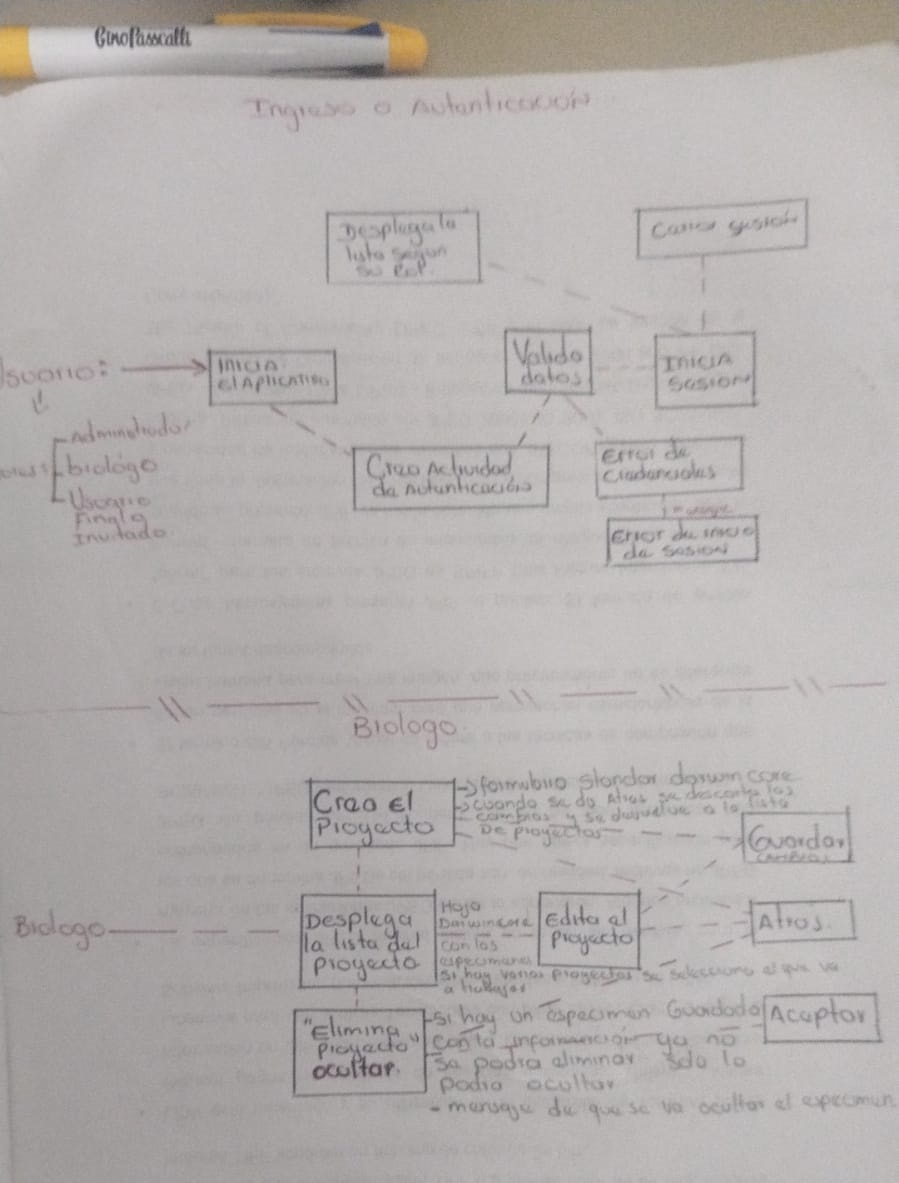 GinoPasscalli
Ingreso o Autenticación
Desplega la
lista segun
su rol.
Cerrar sesión
Usuario:
Inicia
el Aplicativo
Valida
datos
Inicia
sesion
Administrador
biologo
Usuario
Final o
Invitado
Creo Actividad
de Autenticación
Error de
Credenciales
Error de inicio
de sesion
Biologo
Creo El
Proyecto
-> formulario Standar darwin core
-> cuando se da Atras se descarta los
cambios y se devuelve a la lista
De proyectos
Guardar
cambios
Biologo
Desplega
la lista del
proyecto
Hoja
Darwin core
con los
especimenes
si hay varios proyectos se selecciona el que va
a trabajar
Edita el
proyecto
Atras.
"Elimina
Proyecto"
ocultar.
-si hay un especimen Guardado
con la información ya no
se podra eliminar solo lo
podra ocultar
- mensaje de que se va ocultar el especimen
Aceptar